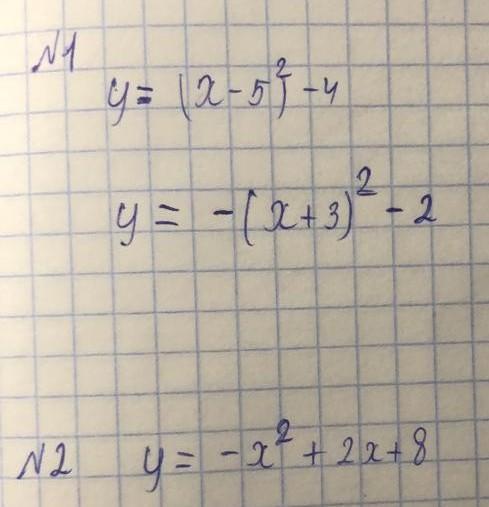 №1
y = (x - 5)² - 4
y = -(x + 3)² - 2
№2 y = -x² + 2x + 8